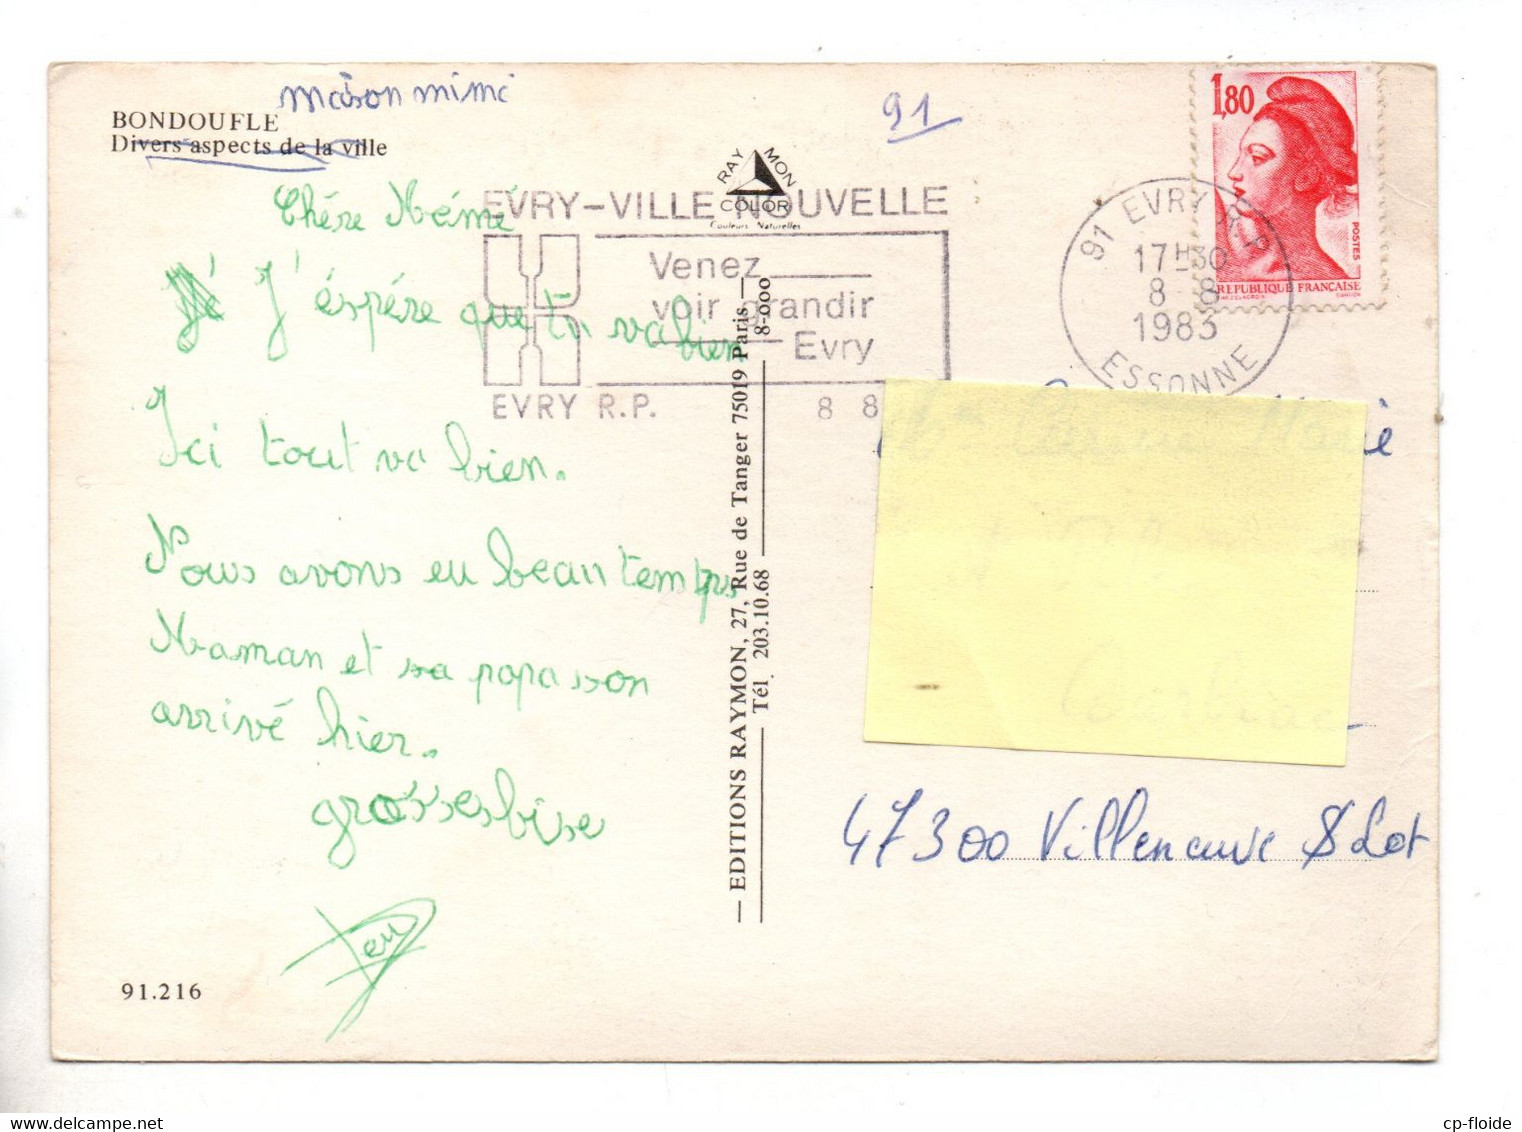 maison mimi
BONDOUFLE
Divers aspects de la ville
91
RAYMON COLOR
Couleurs Naturelles
1,80
POSTES
REPUBLIQUE FRANÇAISE
EVRY-VILLE NOUVELLE
Venez
voir grandir
Evry
EVRY R.P. 8 8
91 EVRY R.P
17H30
8 - 8
1983
ESSONNE
Chére Mémé
J'éspére que tu va bien
Ici tout va bien.
Nous avons eu beau temps
Maman et sa papa son
arrivé hier.
grosses bise
91.216
— EDITIONS RAYMON, 27, Rue de Tanger 75019 Paris —
Tél. 203.10.68
8-000
Marie
47300 Villeneuve S Lot
cp-floide